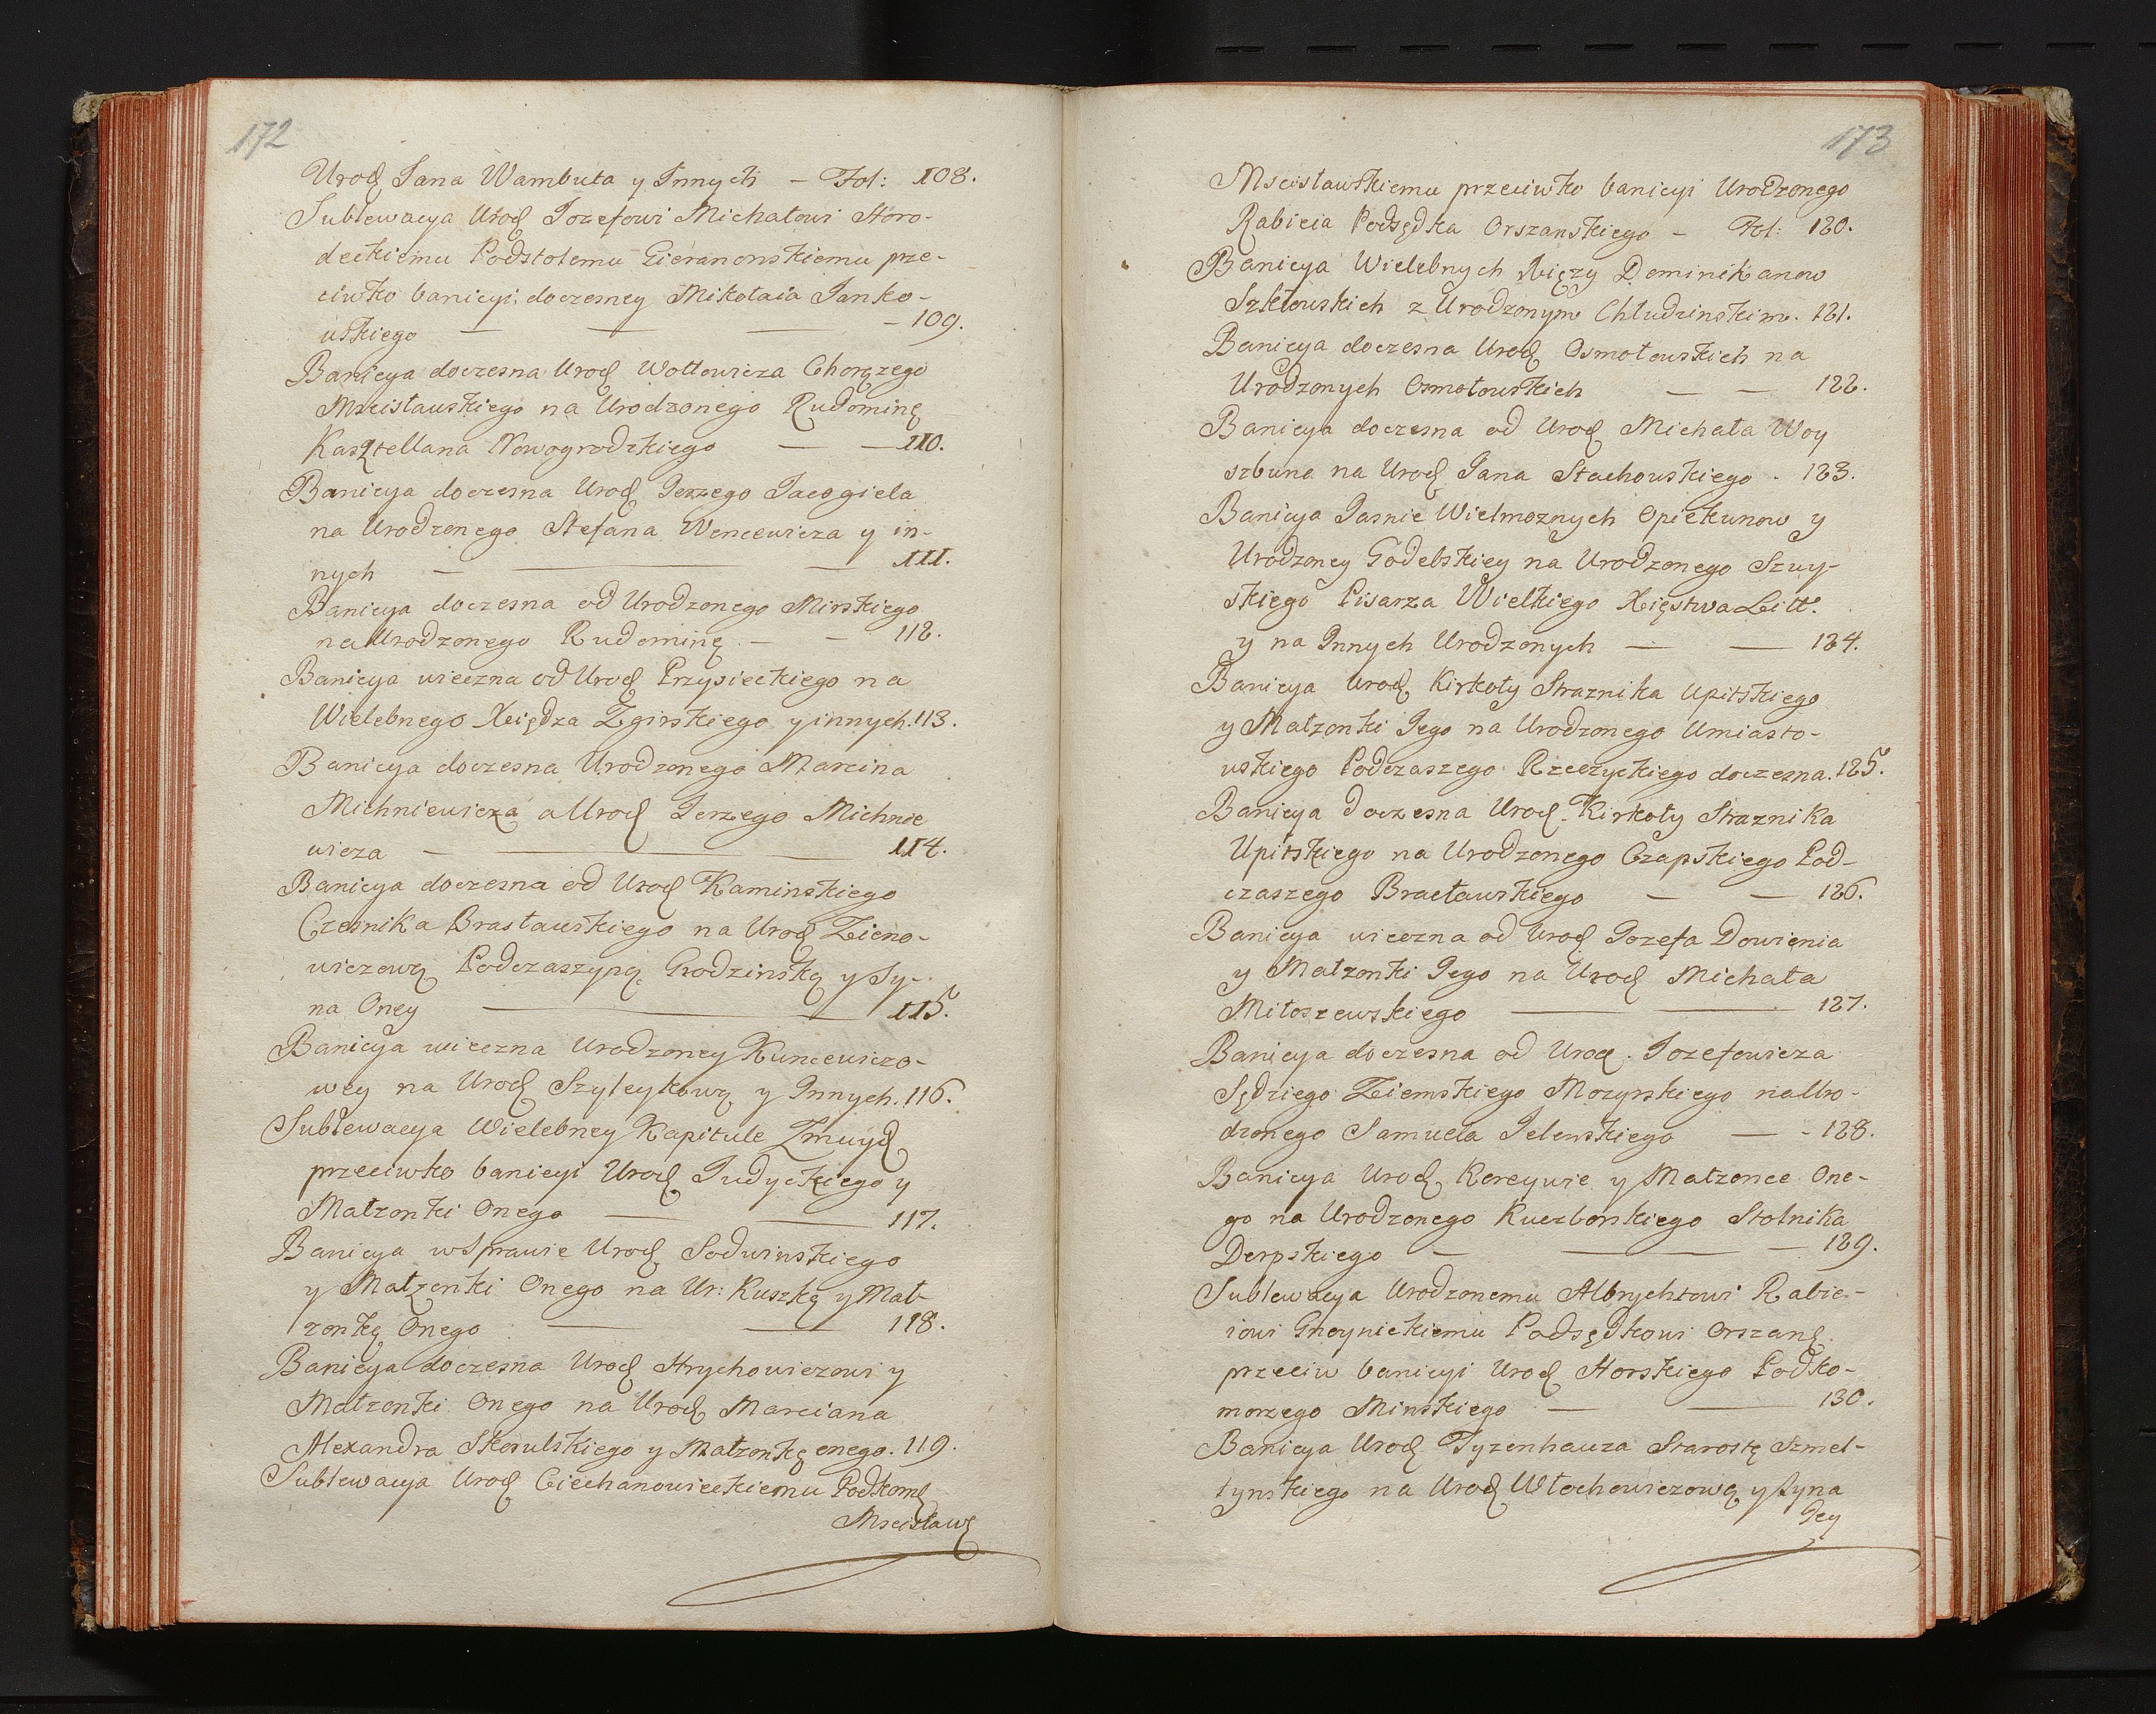 172
Urod Jana Wambuta y Innych — Fol: 108.
Sublewacya Urod Jozefowi Michałowi Horo-
deckiemu Podstolemu Gieranonskiemu prze-
ciwko banicyi doczesney Mikołaia Janko-
wskiego — 109.
Banicya doczesna Urod Wołłowicza Chorązego
Mscisławskiego na Urodzonego Rudominę
Kasztellana Nowogrodzkiego — 110.
Banicya doczesna Urod Jerzego Jacogiela
na Urodzonego Stefana Wencewicza y in-
nych — 111.
Banicya doczesna od Urodzonego Mirskiego
na Urodzonego Rudominę — 112.
Banicya wieczna od Urod Przysieckiego na
Wielebnego Xiędza Zgirskiego y innych. 113.
Banicya doczesna Urodzonego Marcina
Michniewicza a Urod Jerzego Michnie
wicza — 114.
Banicya doczesna od Urod Kaminskiego
Czesnika Brasławskiego na Urod Zieno-
wiczową Podczaszyną Grodzinską y Sy-
na Oney — 115.
Banicya wieczna Urodzoney Kuncewiczo-
wey na Urod Szyleykową y Innych. 116.
Sublewacya Wielebney Kapitule Zmuyd
przeciwko banicyi Urod Judyckiego y
Małzonki Onego — 117.
Banicya w Sprawie Urod Sodwinskiego
y Małzonki Onego na Ur: Kuszkę y Mał-
zonkę Onego — 118.
Banicya doczesna Urod Hrychowiczowi y
Małzonki Onego na Urod Marciana
Alexandra Skorulskiego y Małzonkę onego. 119.
Sublewacya Urod Ciechanowieckiemu Podkom
Mscisław
173
Mscisławskiemu przeciwko banicyi Urodzonego
Rabieia Podsędka Orszanskiego — Fol: 120.
Banicya Wielebnych Xięzy Dominikanow
Szkłowskich z Urodzonym Chludzinskim. 121.
Banicya doczesna Urod Osmołowskich na
Urodzonych Osmołowskich — 122.
Banicya doczesna od Urod Michała Woy
szbuna na Urod Jana Stachowskiego - 123.
Banicya Jasnie Wielmoznych Opiekunow y
Urodzoney Godebskiey na Urodzonego Szuy-
skiego Pisarza Wielkiego Xięstwa Litt:
y na Innych Urodzonych — 124.
Banicya Urod Kirkoły Straznika Upitskiego
y Małzonki Jego na Urodzonego Umiasto-
wskiego Podczaszego Rzeczyckiego doczesna. 125.
Banicya doczesna Urod Kirkoły Straznika
Upitskiego na Urodzonego Czapskiego Pod-
czaszego Bracławskiego — 126.
Banicya wieczna od Urod Jozefa Dowienia
y Małzonki Jego na Urod Michała
Miłoszewskiego — 127.
Banicya doczesna od Urod Jozefowicza
Sędziego Ziemskiego Mozyrskiego na Uro-
dzonego Samuela Jelenskiego — 128.
Banicya Urod Koreywie y Małzonce One-
go na Urodzonego Kuczborskiego Stolnika
Derpskiego — 129.
Sublewacya Urodzonemu Albrychtowi Rabie-
iowi Gnoynickiemu Podsędkowi Orszan
przeciw banicyi Urod Horskiego Podko-
morzego Minskiego — 130.
Banicya Urod Tyzenhauza Starostę Szmel-
tynskiego na Urod Włochowiczową y Syna
Jey